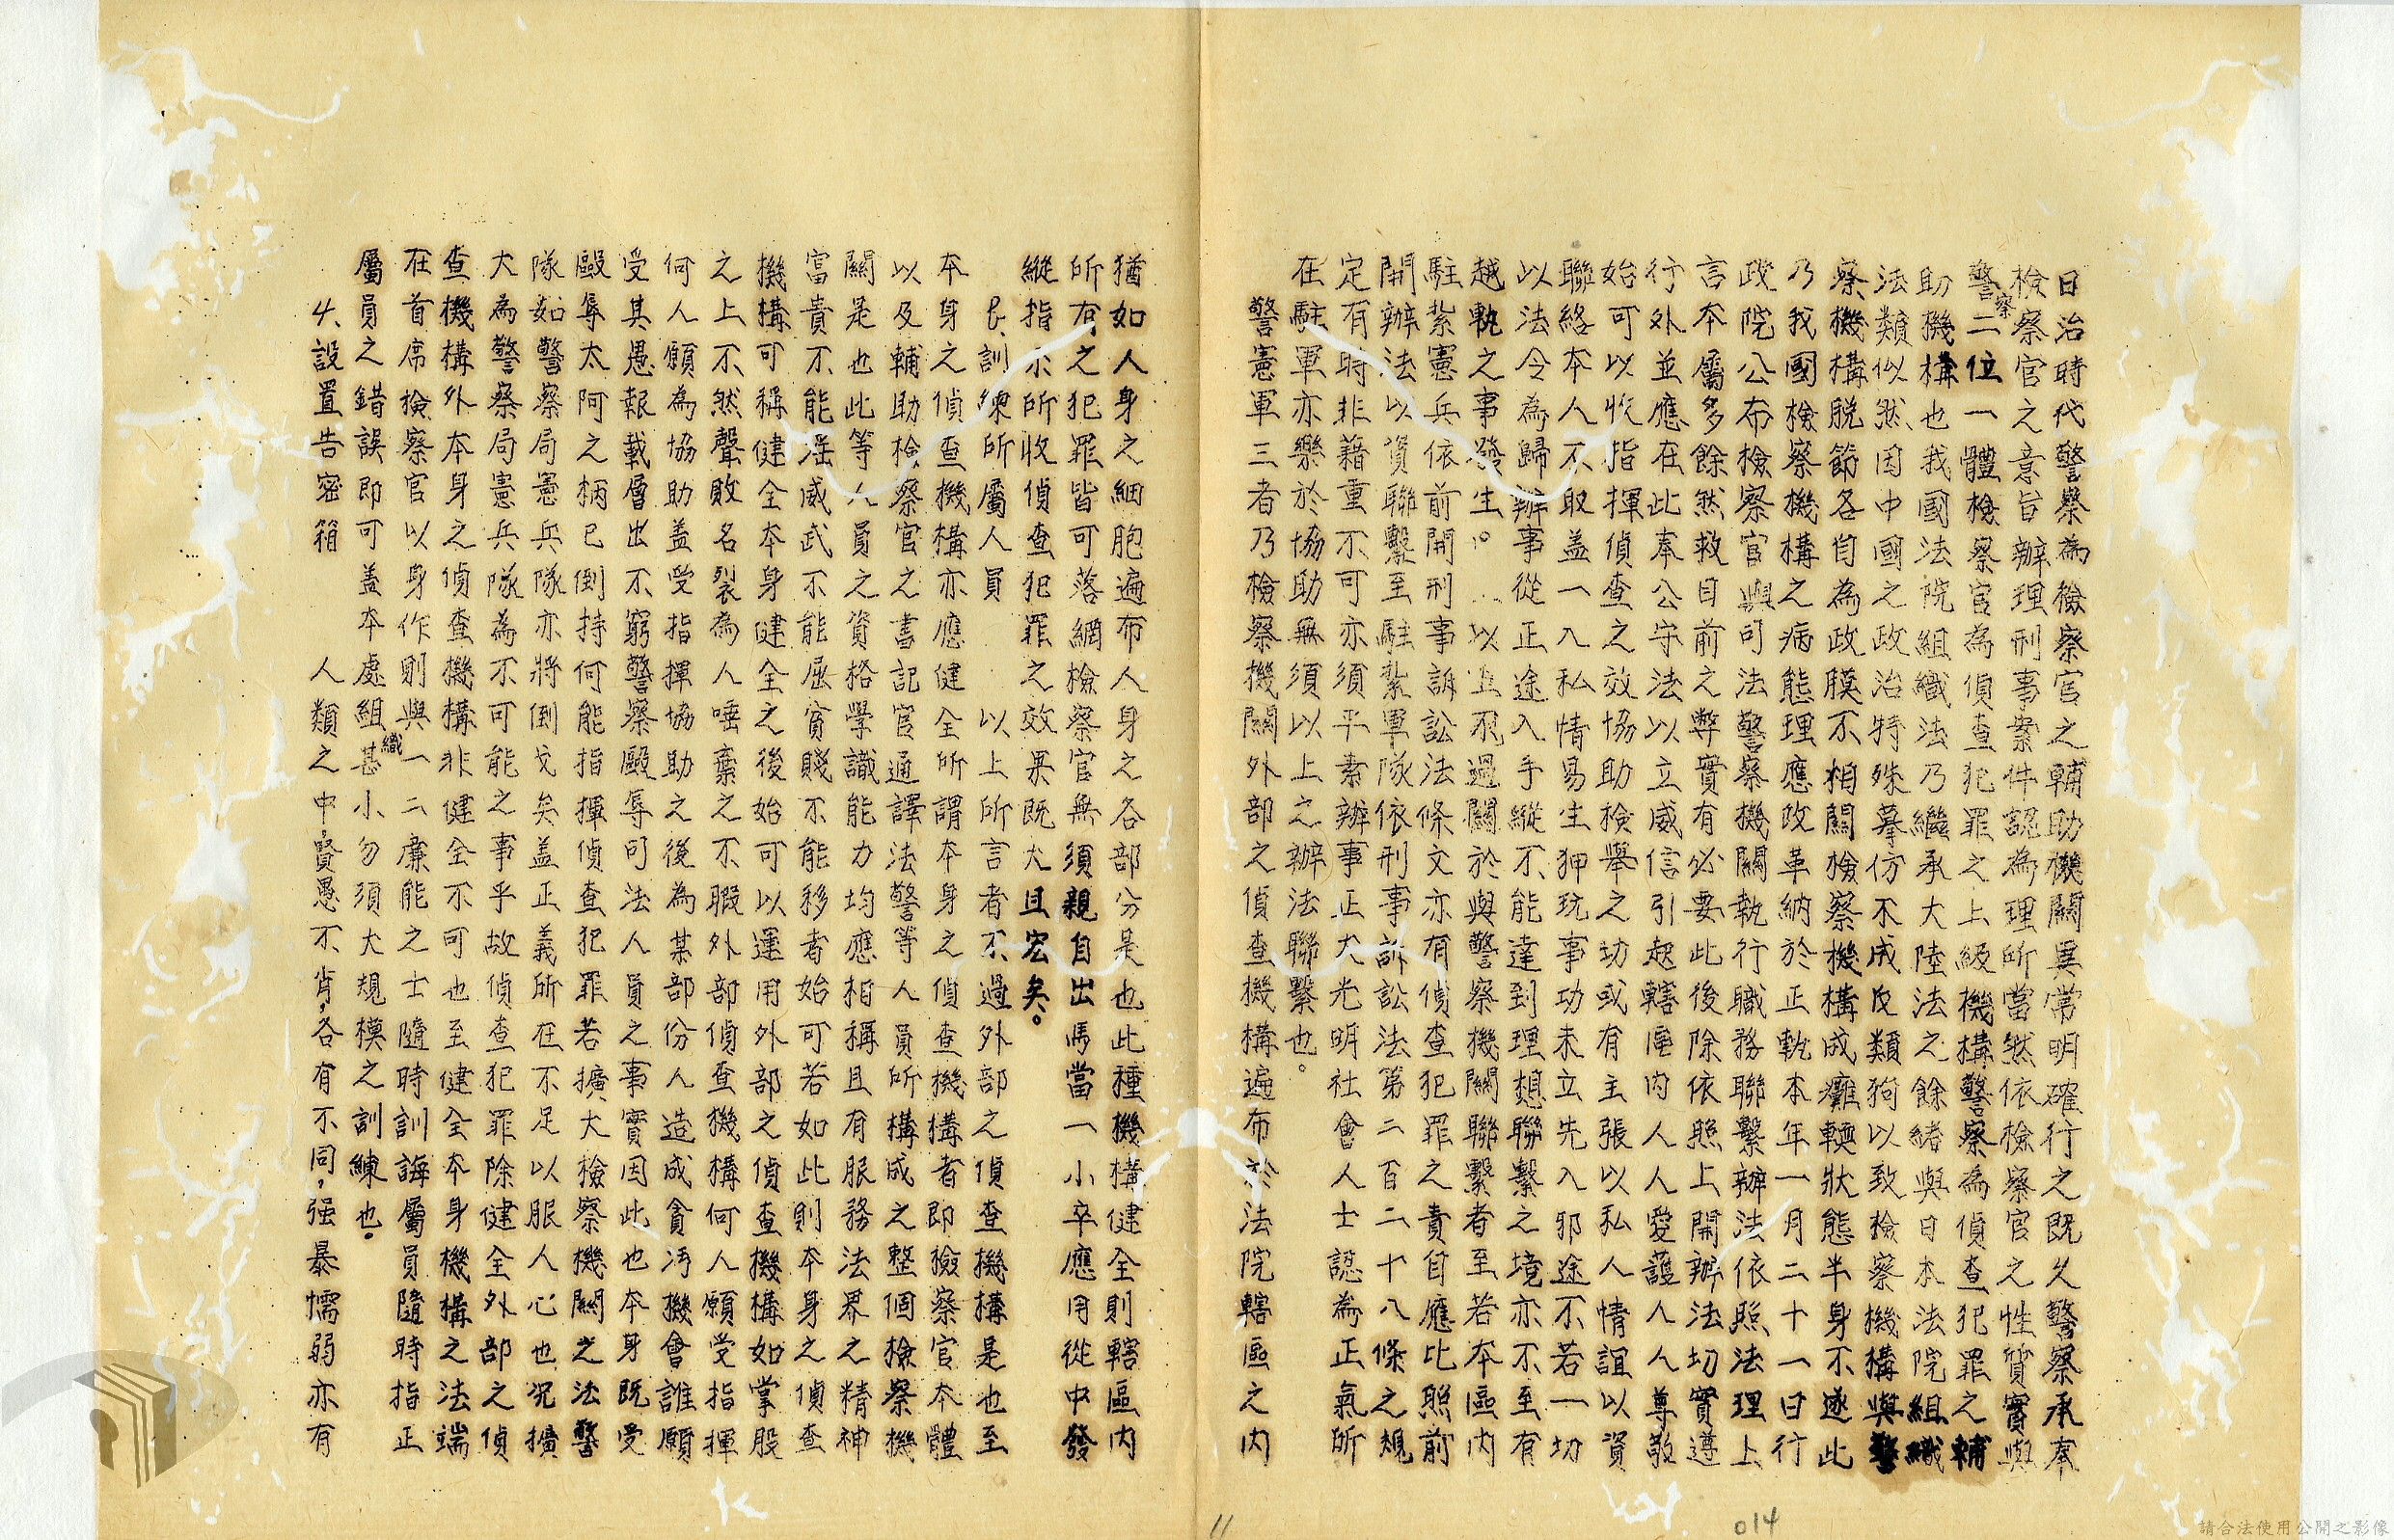 日治時代警察為檢察官之輔助機關異常明確行之既久警察承奉
檢察官之意旨辦理刑事案件認為理所當然依檢察官之性質實與
警察二位一體檢察官為偵查犯罪之上級機構警察為偵查犯罪之輔
助機構也我國法院組織法乃繼承大陸法之餘緒與日本法院組織
法類似然因中國之政治特殊摹仿不成反類狗以致檢察機構與警
察機構脫節各自為政膜不相關檢察機構成癱瘓狀態半身不遂此
乃我國檢察機構之病態理應改革納於正軌本年一月二十一日行
政院公布檢察官與司法警察機關執行職務聯繫辦法依照法理上
言本屬多餘然救目前之弊實有必要此後除依照上開辦法切實遵
行外並應在此奉公守法以立威信引起轄區內人人愛護人人尊敬
始可以收指揮偵查之效協助檢舉之功或有主張以私人情誼以資
聯絡本人不取蓋一入私情易生狎玩事功未立先入邪途不若一切
以法令為歸辦事從正途入手縱不能達到理想聯繫之境亦不至有
越軌之事發生。以上不過關於與警察機關聯繫者至若本區內
駐紮憲兵依前開刑事訴訟法條文亦有偵查犯罪之責自應比照前
開辦法以資聯繫至駐紮軍隊依刑事訴訟法第二百二十八條之規
定有時非藉重不可亦須平素辦事正大光明社會人士認為正氣所
在駐軍亦樂於協助無須以上之辦法聯繫也。
警憲軍三者乃檢察機關外部之偵查機構遍布於法院轄區之內
猶如人身之細胞遍布人身之各部分是也此種機構健全則轄區內
所有之犯罪皆可落網檢察官無須親自出馬當一小卒應用從中發
縱指示所收偵查犯罪之效果既大且宏矣。
3、訓練所屬人員 以上所言者不過外部之偵查機構是也至
本身之偵查機構亦應健全所謂本身之偵查機構者即檢察官本體
以及輔助檢察官之書記官通譯法警等人員所構成之整個檢察機
關是也此等人員之資格學識能力均應相稱且有服務法界之精神
富貴不能淫威武不能屈貧賤不能移者始可若如此則本身之偵查
機構可稱健全本身健全之後始可以運用外部之偵查機構如掌股
之上不然聲敗名裂為人唾棄之不暇外部偵查機構何人願受指揮
何人願為協助蓋受指揮協助之後為某部份人造成貪污機會誰願
受其愚報載層出不窮警察毆辱司法人員之事實因此也本身既受
毆辱太阿之柄已倒持何能指揮偵查犯罪若擴大檢察機關之法警
隊如警察局憲兵隊亦將倒戈矣蓋正義所在不足以服人心也況擴
大為警察局憲兵隊為不可能之事乎故偵查犯罪除健全外部之偵
查機構外本身之偵查機構非健全不可也至健全本身機構之法端
在首席檢察官以身作則與一二廉能之士隨時訓誨屬員隨時指正
屬員之錯誤即可蓋本處組織甚小勿須大規模之訓練也。
4、設置告密箱 人類之中，賢愚不肖，各有不同，强暴懦弱亦有
11
014
請合法使用公開之影像